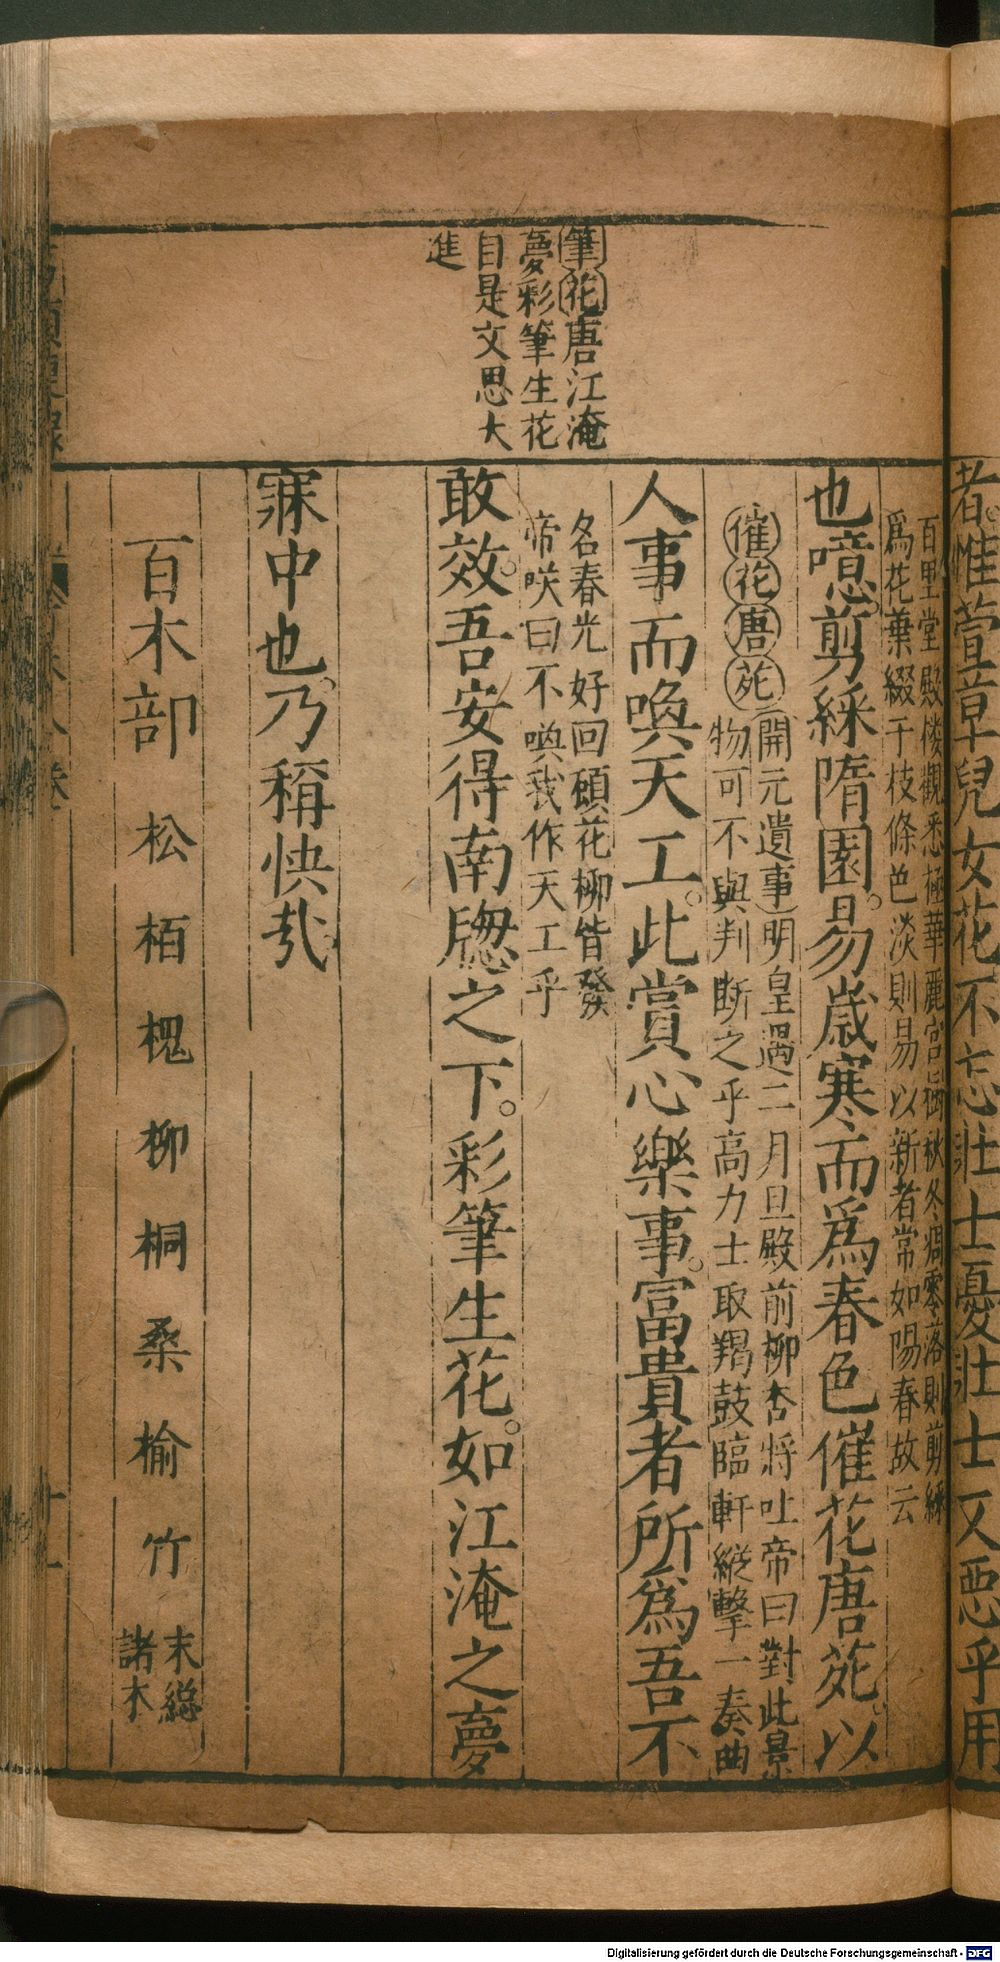 者惟萱草兒女花不忘壯士憂壯士又惡乎用
百里堂殿楼觀悉極華麗宮樹秋冬凋零落則剪綵
爲花葉綴于枝條色淡則易以新者常如陽春故云
也噫剪綵隋園。易歲寒而爲春色催花唐苑。以
催花唐苑
開元遺事明皇遇二月旦殿前柳杏將吐帝曰對此景
物可不與判断之乎高力士取羯鼓臨軒縱擊一奏曲
人事而喚天工。此賞心樂事。富貴者所爲吾不
名春光好回顧花柳皆發
帝咲曰不喚我作天工乎
筆花唐江淹
夢彩筆生花
自是文思大
進
敢效。吾安得南牎之下。彩筆生花。如江淹之夢
寐中也。乃稱快哉
百木部 松 栢 槐 柳 桐 桑 榆 竹 末総
諸木
Digitalisierung gefördert durch die Deutsche Forschungsgemeinschaft - DFG